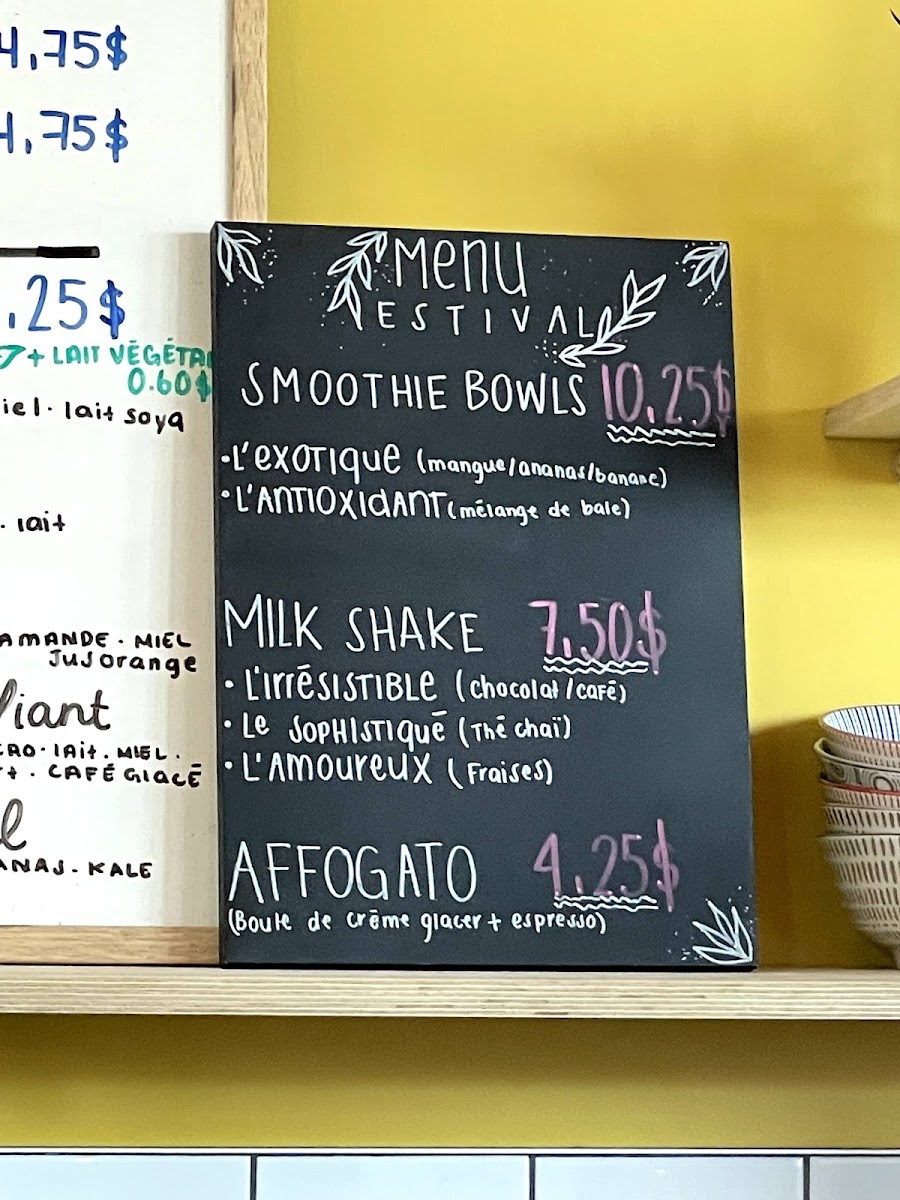 4,75$
4,75$
.25$
+ LAIT VÉGÉTA
0.60$
iel. lait soya
. lait
AMANDE . MIEL
Jus orange
iant
CAO . lait . MIEL .
. CAFÉ GLACÉ
ANAS . KALE
Menu
ESTIVAL
SMOOTHIE BOWLS 10.25$
• L'EXOTIQUE (mangue/ananas/banane)
• L'ANTIOXIDANT (mélange de baie)
MILK SHAKE 7,50$
• L'IRRÉSISTIBLE (chocolat/café)
• Le SOPHISTIQUÉ (Thé chaï)
• L'AMOUREUX (Fraises)
AFFOGATO 4,25$
(Boule de crème glacer + espresso)